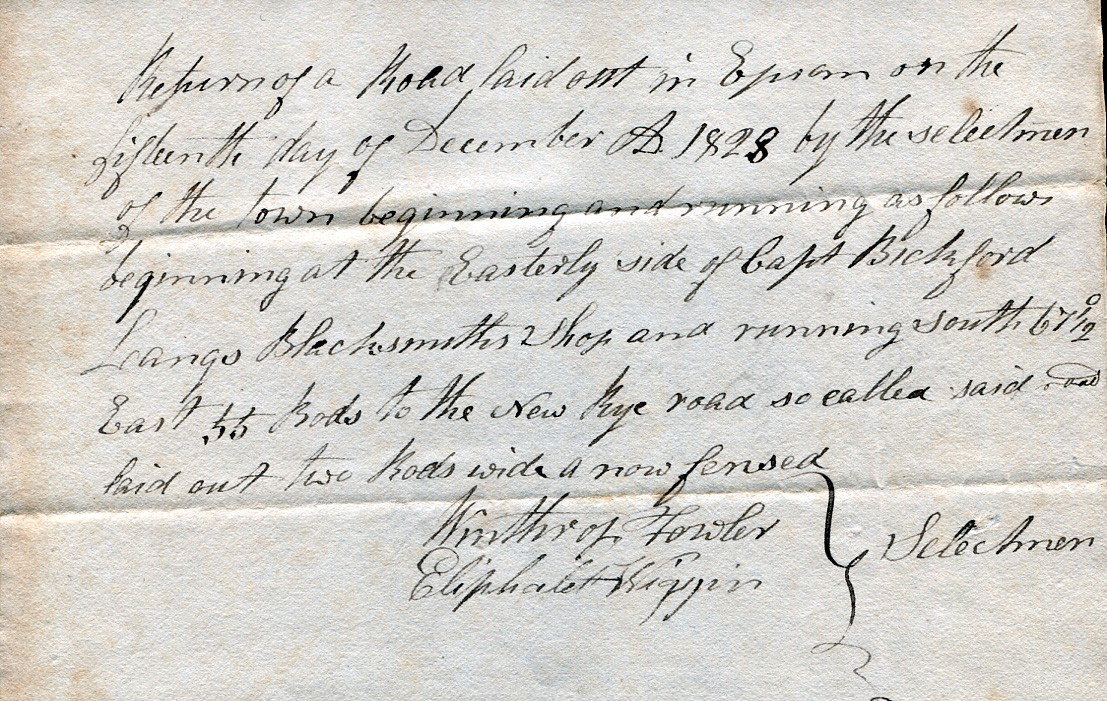 Return of a Road laid out in Epsom on the
fifteenth day of December AD 1828 by the selectmen
of the town beginning and running as follows
beginning at the Easterly side of Capt Bickford
Langs Blacksmiths Shop and running south 67 1/2°
East 55 Rods to the New Rye road so called said road
laid out two Rods wide a now fensed
Winthrop Fowler
Eliphalet Wiggin
Selectmen